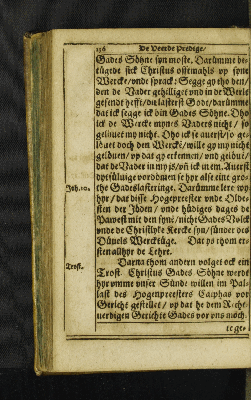 156 De Veerde Predige/
Gades Söhne syn moste. Darümme be-
tügede sick Christus offtemahls vp syne
Wercke/vnde sprack: Segge gy tho den/
den de Vader gehilliget vnd in de Werlt
gesendt hefft/du lasterst Godt/darümme
dat ick segge ick bin Gades Söhne. Dho
ick de Wercke mynes Vaders nicht/ so
gelövet my nicht. Dho ick se auerst/so ge-
lövet doch den Wercke/wille gy my nicht
gelöuen/vp dat gy erkennen/vnd gelöuë/
dat de Vader in my is/vñ ick in em. Auerst
dyt hyr alse eine gro-
Joh. 10. the Gadeslasteringe. Darümme lere wy
hyr/dat disse Hogepreester vnde Olde-
sten der Jöden/ vnde hüdiges dages de
Pawest mit den syni/nicht Gades Volck
vnde de Christlyke Kercke syn/sünder des
Düuels Wercktüge. Dat ys thom er-
sten allhyr de Lehre.
Darna thom andern volget ock ein
Trost. Trost. Christus Gades Söhne werdt
hyr vmme vnser Sünde willen im Pal-
last des Hogenpreesters Caiphas vor
Gerichte gestellet/ vp dat he dem Rechtt-
uerdigen Gerichte Gades vor vns möch-
te ge-